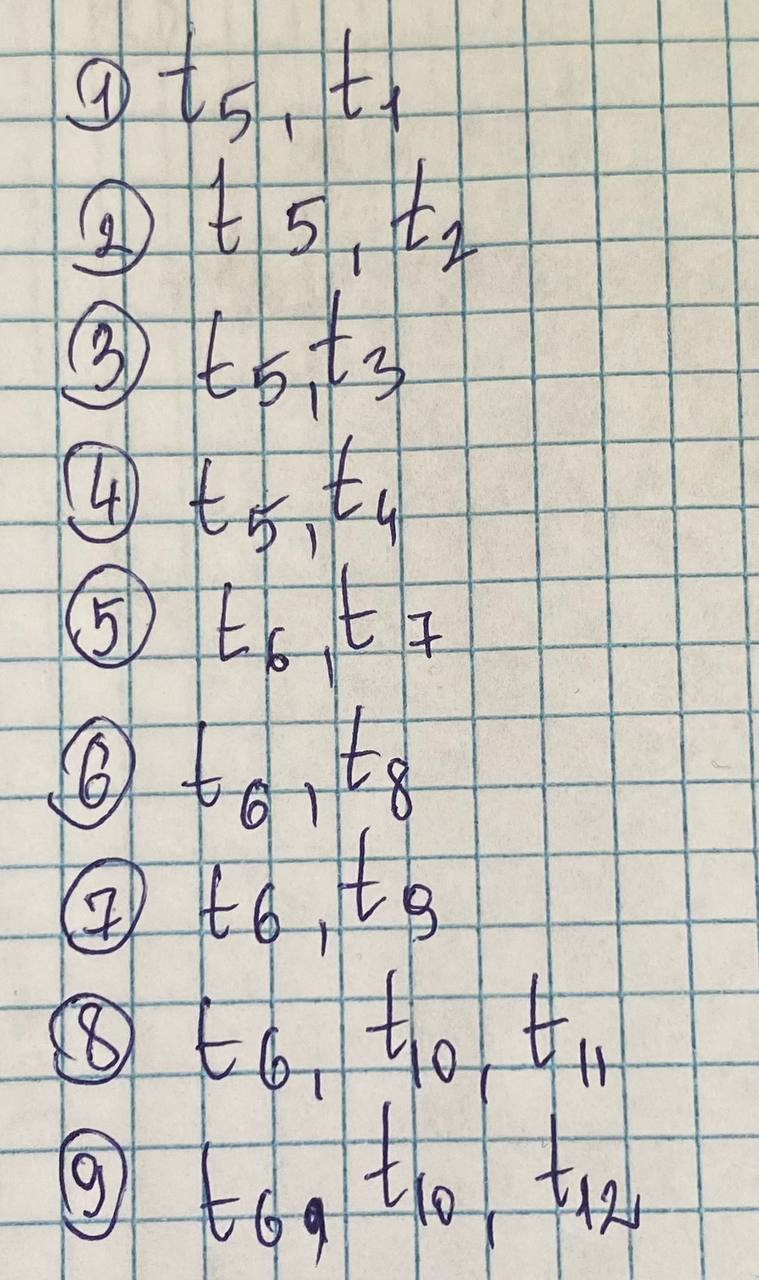 ① t₅, t₁
② t 5, t₂
③ t₅, t₃
④ t₅, t₄
⑤ t₆, t₇
⑥ t₆, t₈
⑦ t₆, t₉
⑧ t₆, t₁₀, t₁₁
⑨ t₆, t₁₀, t₁₂